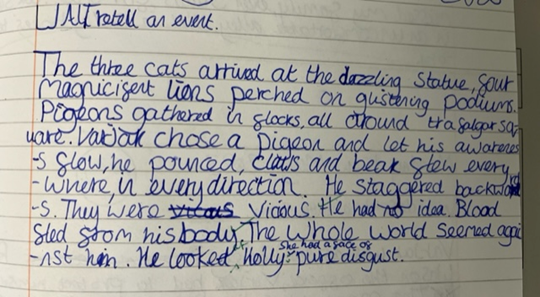 WALT retell an event.
The three cats arrived at the dazzling statue, four
Magnicifent lions perched on glistening podiums.
Pigeons gathered in flocks, all around trafalgar sq
uare. Varjak chose a pigeon and let his awarenes
-s flow, he pounced, claws and beak flew every
-where, in every direction. He staggered backward
-s. They were vicious. He had no idea. Blood
fled from his body. The whole world seemed agai
she had a face of
-nst him. He looked Holly pure disgust.